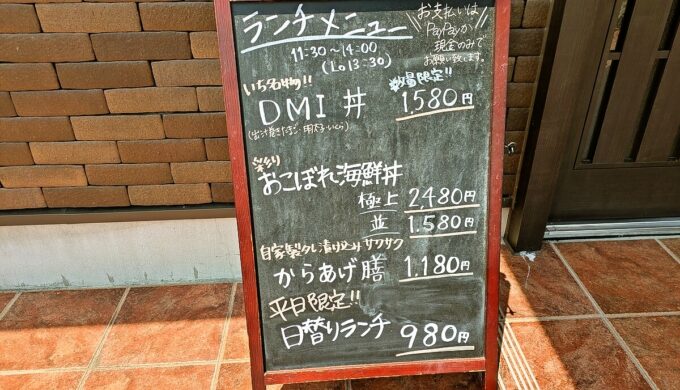 ランチメニュー
お支払いは
PayPayか
現金のみで
お願い致します。
11:30〜14:00
(Lo13:30)
いち名物!!
数量限定!!
DMI丼 1,580円
(出汁巻きたまご・明太子・いくら)
彩り
おこぼれ海鮮丼
極上 2,480円
並 1,580円
自家製タレ漬け込みサクサク
からあげ膳 1,180円
平日限定!!
日替りランチ 980円